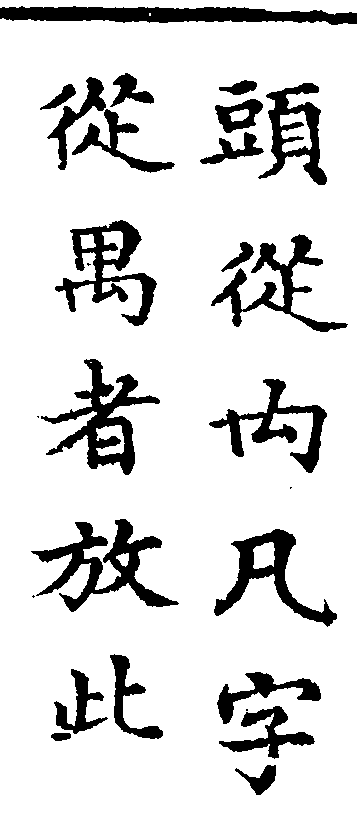 頭從禸凡字
從禺者放此